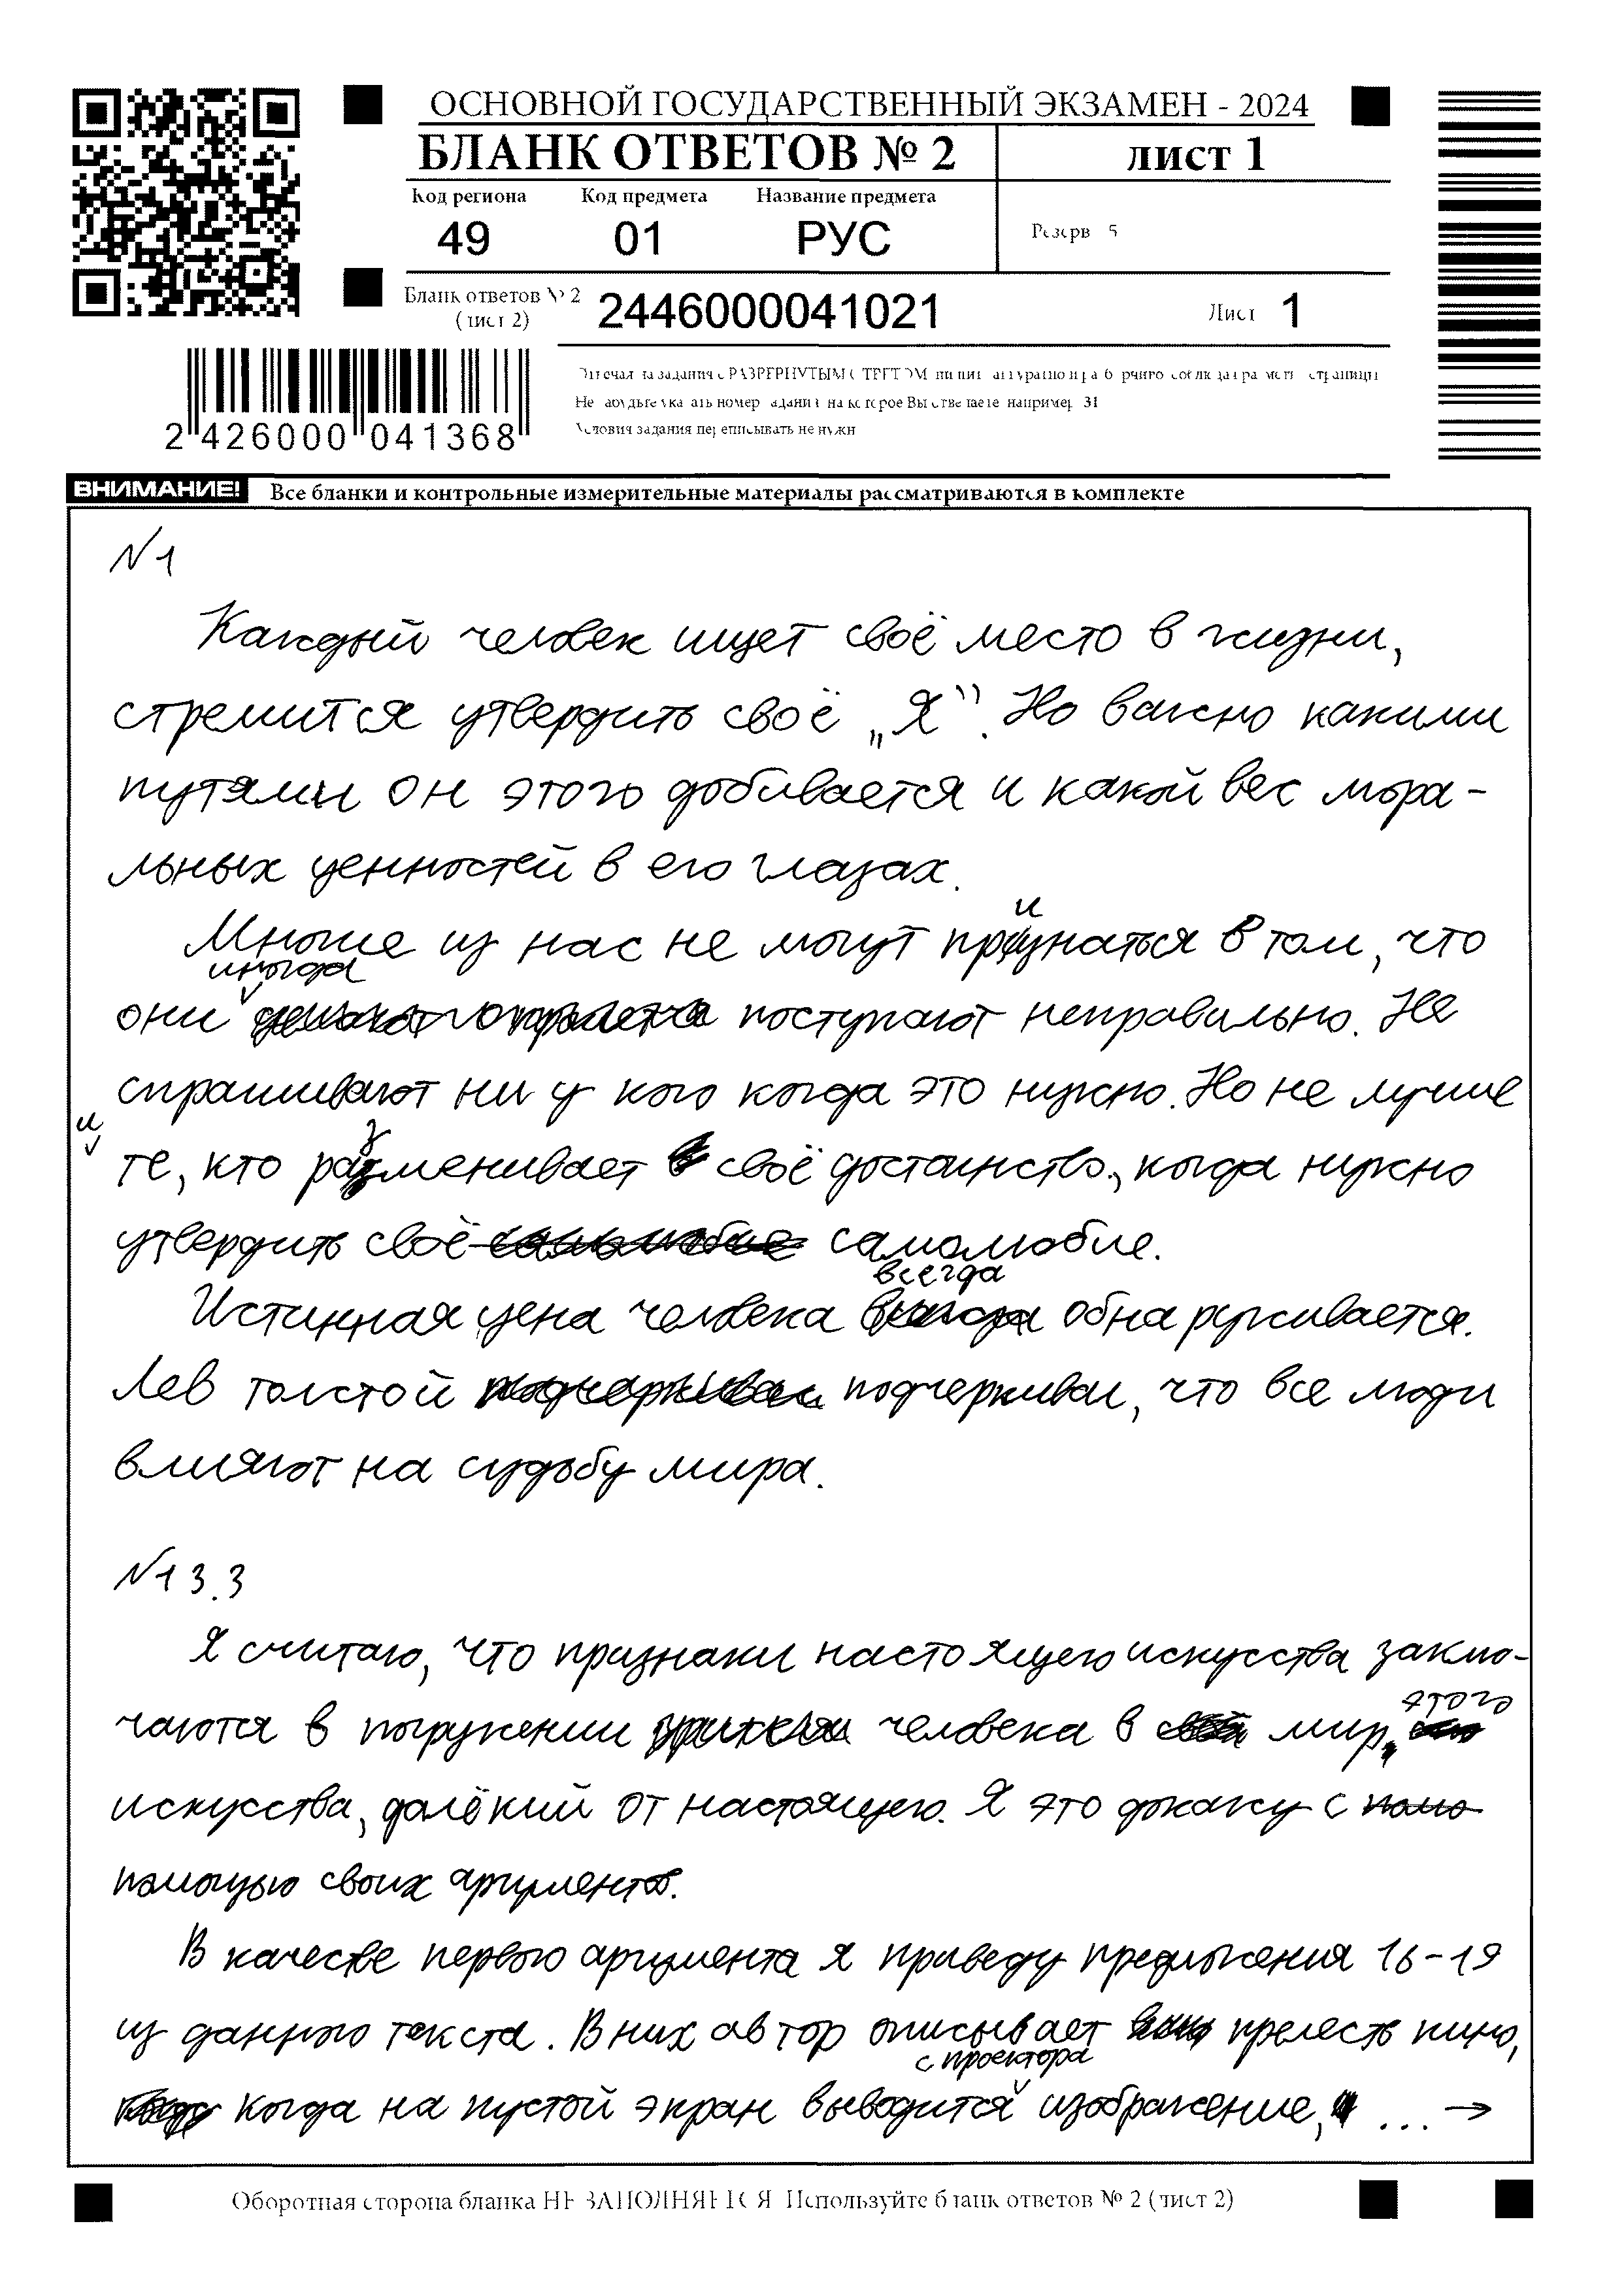 ОСНОВНОЙ ГОСУДАРСТВЕННЫЙ ЭКЗАМЕН - 2024
БЛАНК ОТВЕТОВ № 2
лист 1
Код региона Код предмета Название предмета
49 01 РУС
Резерв 5
Бланк ответов № 2
(лист 2)
2446000041021
Лист 1
2 426000 041368
Не забудьте указать номер задания на которое Вы отвечаете например 31
Условия задания переписывать не нужн
ВНИМАНИЕ! Все бланки и контрольные измерительные материалы рассматриваются в комплекте
N1
Каждый человек ищет своё место в жизни,
стремится утвердить своё „Я“. Но важно какими
путями он этого добивается и какой вес мора-
льных ценностей в его глазах.
Многие из нас не могут признаться в том, что
они иногда поступают неправильно. Не
спрашивают ни у кого когда это нужно. Но не лучше
и те, кто разменивает своё достоинство, когда нужно
утвердить своё самолюбие.
Истинная цена человека всегда обнаруживается.
Лев толстой подчеркивал, что все люди
влияют на судьбу мира.
N13.3
Я считаю, что признаки настоящего искусства заклю-
чаются в погружении человека в мир этого
искусства, далёкий от настоящего. Я это докажу с
помощью своих аргументов.
В качестве первого аргумента я приведу предложения 16-19
из данного текста. В них автор описывает прелесть кино,
когда на пустой экран выводится с проектора изображение, ... →
Оборотная сторона бланка НЕ ЗАПОЛНЯЕТСЯ Используйте бланк ответов № 2 (лист 2)